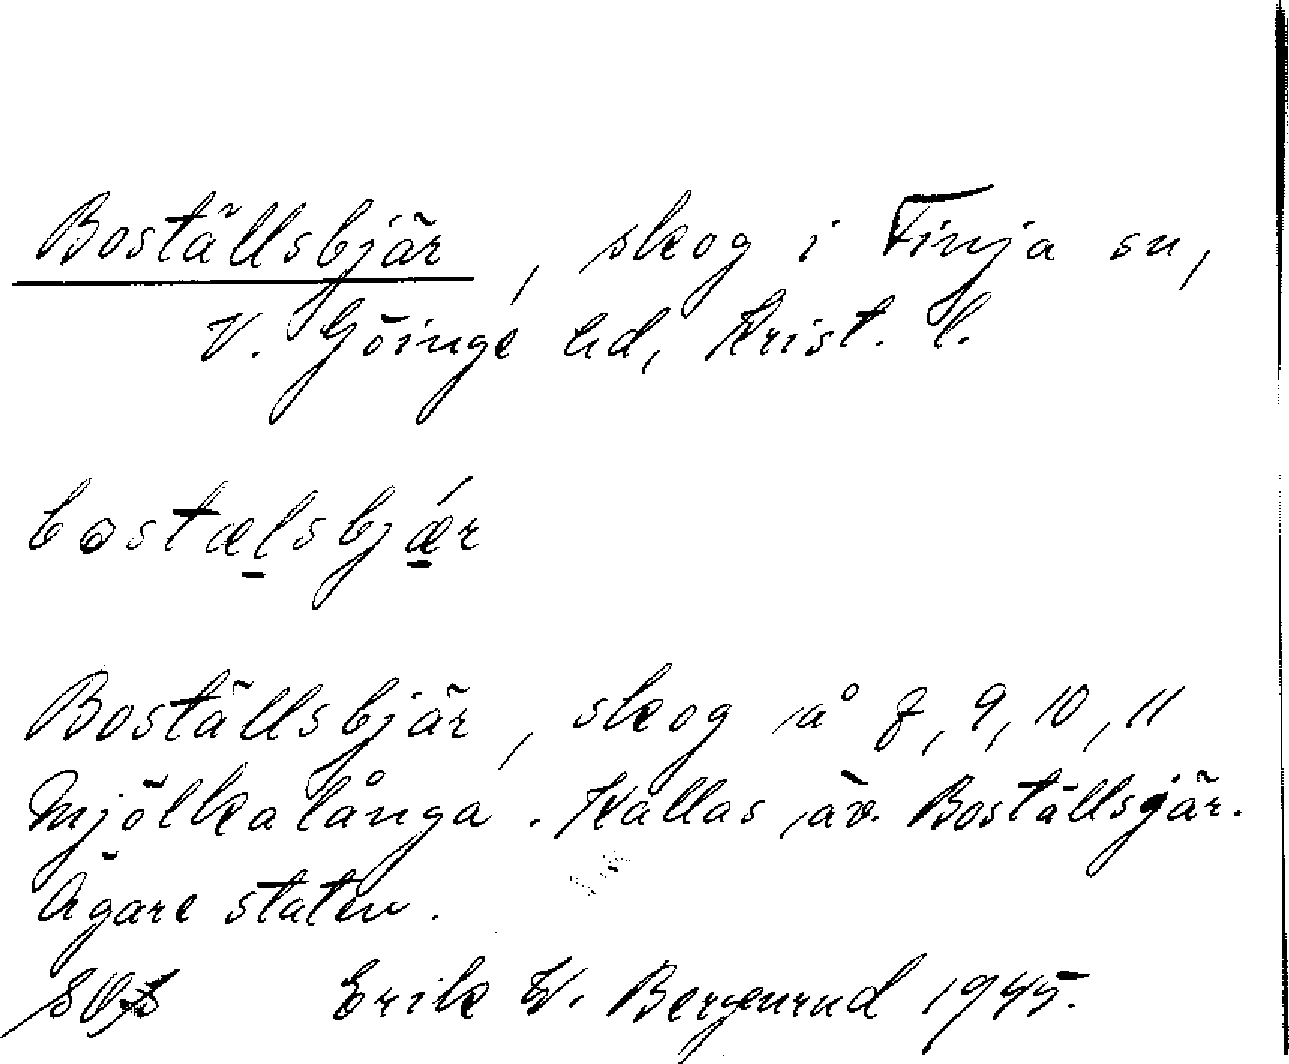 Boställsbjär, skog i Finja sn,
V. Göinge hd, Krist. l.
bostælsbjǽr
Boställsbjär, skog å 8, 9, 10, 11
Mjölkalånga. Kallas äv. Boställsgjär.
Ägare staten.
Erik W. Bergenrud 1945.